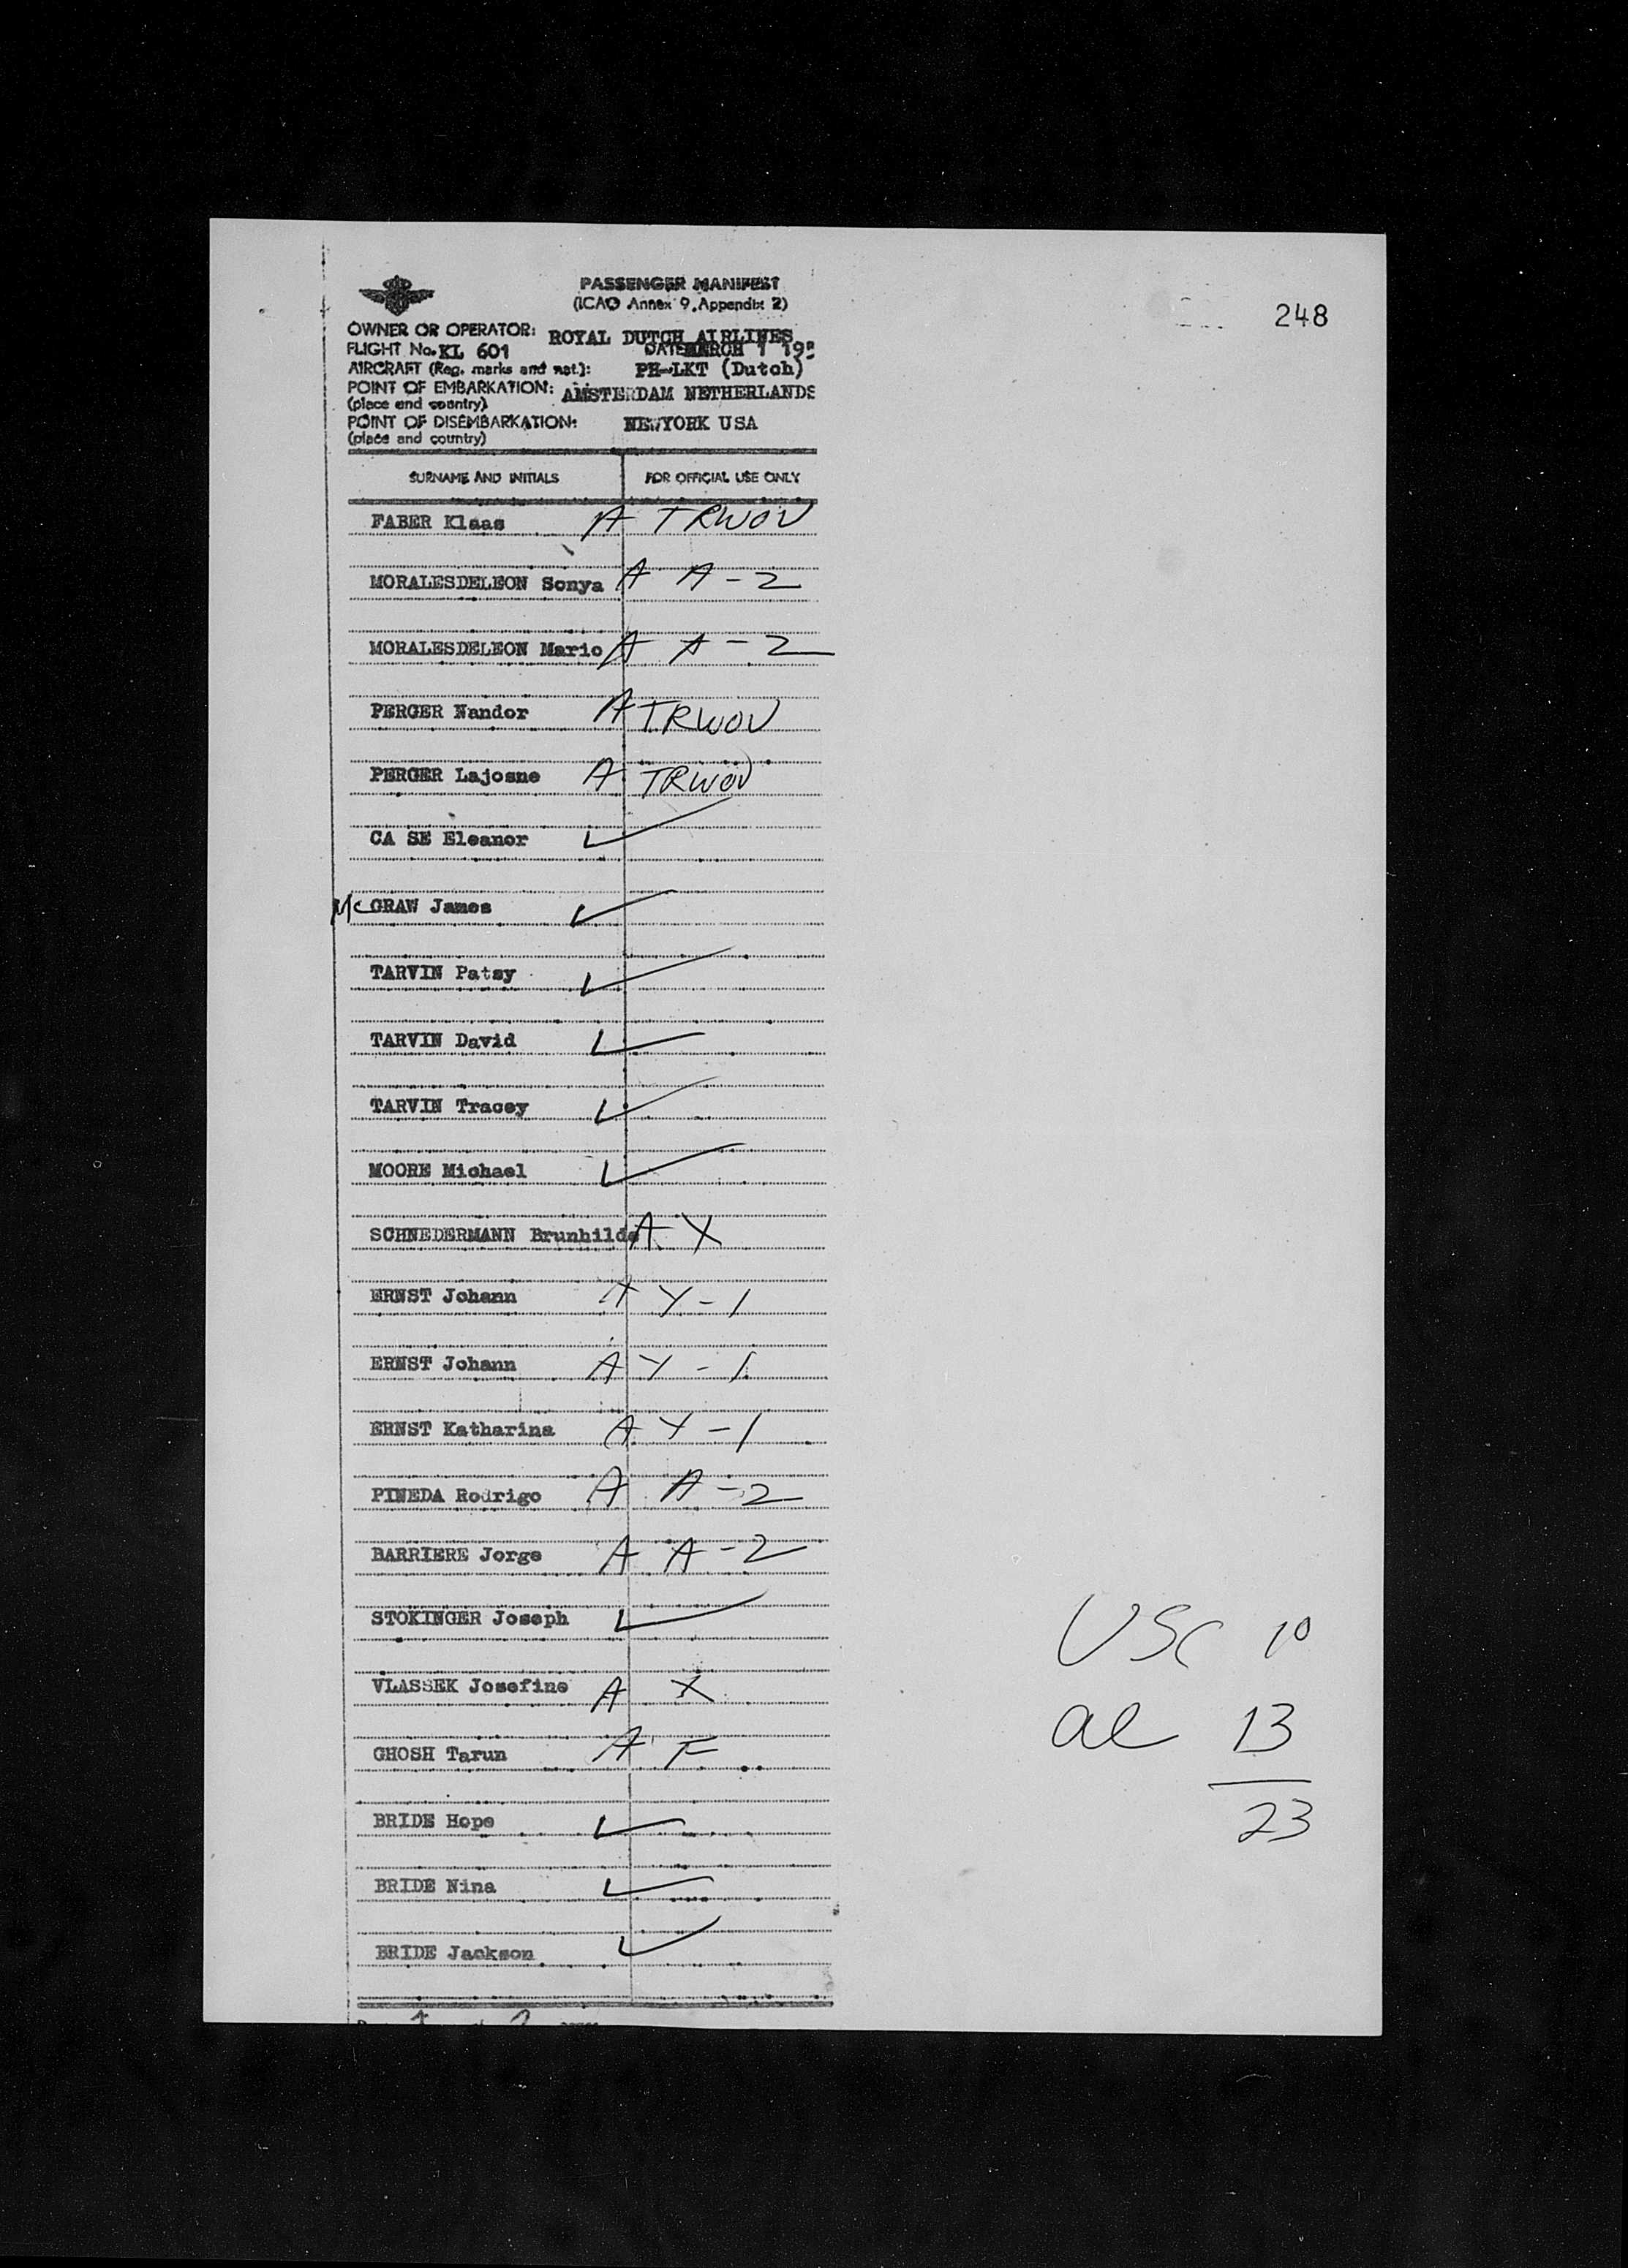 PASSENGER MANIFEST
(ICAO Annex 9, Appendix 2)
248
OWNER OR OPERATOR: ROYAL DUTCH AIRLINES
FLIGHT No. KL 601 DATE MARCH 1 195
AIRCRAFT (Reg. marks and nat.): PH-LKT (Dutch)
POINT OF EMBARKATION: AMSTERDAM NETHERLANDS
(place and country)
POINT OF DISEMBARKATION: NEWYORK USA
(place and country)
SURNAME AND INITIALS FOR OFFICIAL USE ONLY
FABER Klaas A TRWOV
MORALESDELEON Sonya A A-2
MORALESDELEON Mario A A-2
PERGER Nandor A TRWOV
PERGER Lajosne A TRWOV
CA SE Eleanor ✓
McGRAW James ✓
TARVIN Patsy ✓
TARVIN David ✓
TARVIN Tracey ✓
MOORE Michael ✓
SCHNEDERMANN Brunhilde A X
ERNST Johann A Y-1
ERNST Johann A Y-1
ERNST Katharina A Y-1
PINEDA Rodrigo A A-2
BARRIERE Jorge A A-2
STOKINGER Joseph ✓
VLASSEK Josefine A X
GHOSH Tarun A F
BRIDE Hope ✓
BRIDE Nina ✓
BRIDE Jackson ✓
USC 10
al 13
23